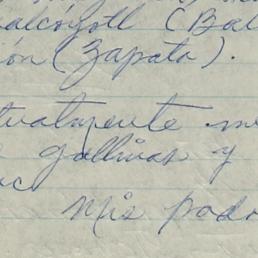 alcóyotl (Bal
ión (Zapata).
tualmente me
gallinas y
Mis padr